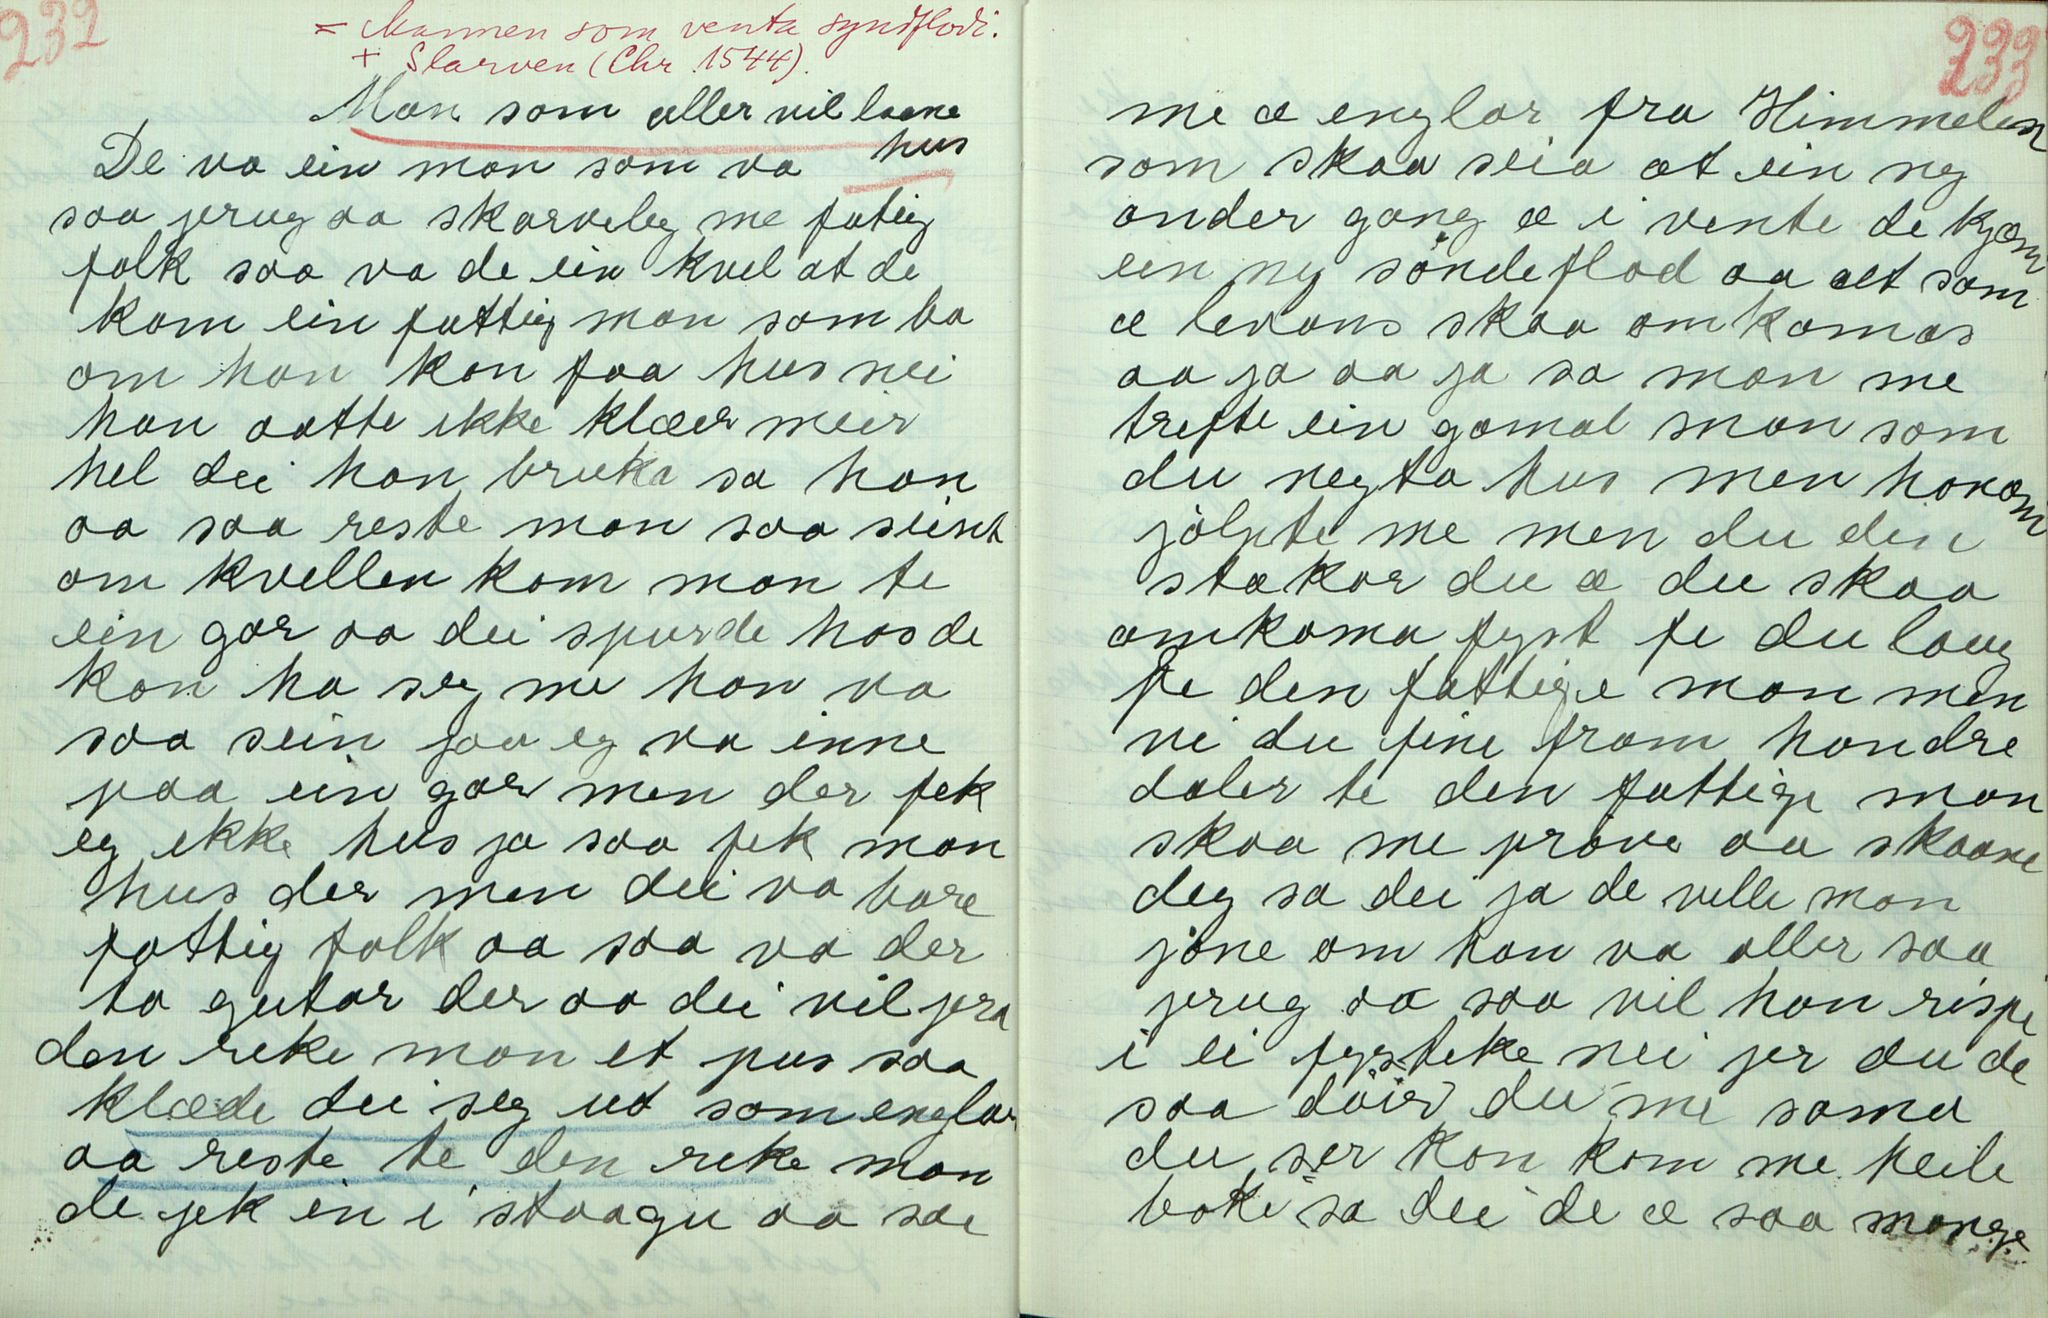 232
= Mannen som venta syndflodi.
+ Slarven (Chr. 1544).
Man som aller vil laane
hus
De va ein man som va
saa jerug aa skarveleg me fatig
folk saa va de ein kvel at de
kom ein fattig man som ba
om han kan faa hus nei
han aatte ikke klæer meir
hel dei han bruka sa han
aa saa reste man saa seint
om kvellen kom man te
ein gar aa dei spurde has de
kan ha seg me han va
saa sein jaa eg va inne
paa ein gar men der fek
eg ikke hus ja saa fek man
hus der men dei va bare
fattig folk aa saa va der
to gutar der aa dei vil jera
den reke man et pus saa
klæde dei seg ut som englar
aa reste te den reke man
de jek in i staagu aa sae
233
me æ englar fra Himmelen
som skaa seia at ein ny
ander gang æ i vente de kjæm
ein ny søndeflod aa alt som
æ levans skaa omkomas
aa ja aa ja sa man me
trefte ein gamal man som
du negta hus men honom
jolpte me men du din
stakar du æ du skaa
omkoma fyst fe du laug
fe den fattige man men
vi du fine fram hondre
daler te den fattige man
skaa me prøve aa skaane
deg sa dei ja de velle man
jøne om han va aller saa
jerug aa saa vil han rispe
i ei fysteke nei jer du de
saa døier du me sama
du ser kan kom me heile
boke sa dei de æ saa mange